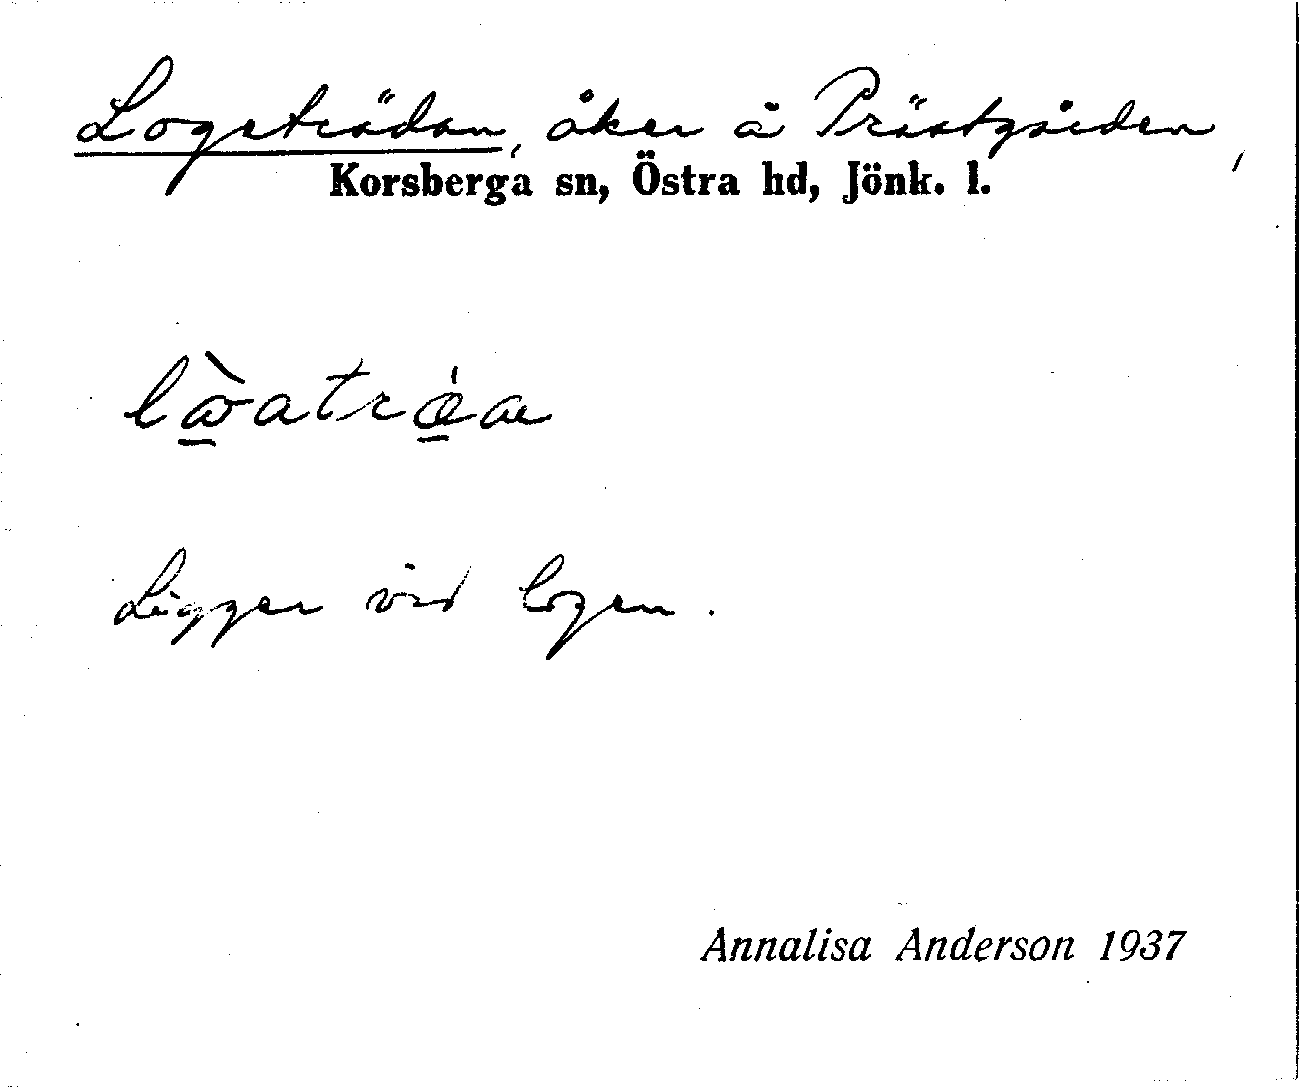 Logeträdan, åker å Prästgården,
Korsberga sn, Östra hd, Jönk. l.
Ligger vid logen.
Annalisa Anderson 1937